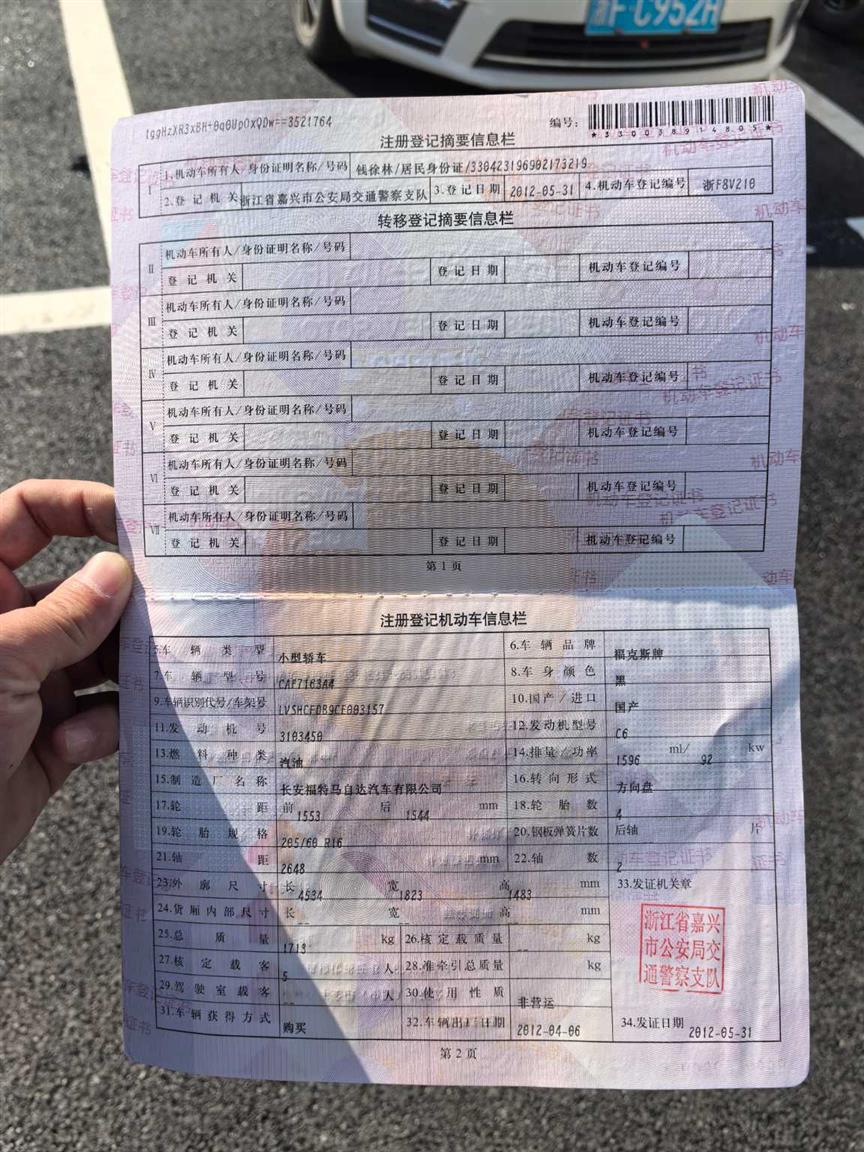 浙F·C952H
tggHzXR3xBH+0q0UpOxQDw==3521764
编号:
*330038914805*
注册登记摘要信息栏
I 1.机动车所有人/身份证明名称/号码 钱徐林/居民身份证/330423196902173219
2.登记机关 浙江省嘉兴市公安局交通警察支队 3.登记日期 2012-05-31 4.机动车登记编号 浙F8V210
转移登记摘要信息栏
II 机动车所有人/身份证明名称/号码
登记机关 登记日期 机动车登记编号
III 机动车所有人/身份证明名称/号码
登记机关 登记日期 机动车登记编号
IV 机动车所有人/身份证明名称/号码
登记机关 登记日期 机动车登记编号
V 机动车所有人/身份证明名称/号码
登记机关 登记日期 机动车登记编号
VI 机动车所有人/身份证明名称/号码
登记机关 登记日期 机动车登记编号
VII 机动车所有人/身份证明名称/号码
登记机关 登记日期 机动车登记编号
第1页
注册登记机动车信息栏
5.车辆类型 小型轿车 6.车辆品牌 福克斯牌
7.车辆型号 CAF7163A4 8.车身颜色 黑
9.车辆识别代号/车架号 LVSHCFDB9CE003157 10.国产/进口 国产
11.发动机号 3103450 12.发动机型号 C6
13.燃料种类 汽油 14.排量/功率 1596 ml/ 92 kw
15.制造厂名称 长安福特马自达汽车有限公司 16.转向形式 方向盘
17.轮距 前 1553 后 1544 mm 18.轮胎数 4
19.轮胎规格 205/60 R16 20.钢板弹簧片数 后轴 片
21.轴距 2648 mm 22.轴数 2
23.外廓尺寸 长 4534 宽 1823 高 1483 mm 33.发证机关章
24.货厢内部尺寸 长 -- 宽 -- 高 -- mm
浙江省嘉兴
市公安局交
通警察支队
25.总质量 1713 kg 26.核定载质量 -- kg
27.核定载客 5 人 28.准牵引总质量 -- kg
29.驾驶室载客 -- 人 30.使用性质 非营运
31.车辆获得方式 购买 32.车辆出厂日期 2012-04-06 34.发证日期 2012-05-31
第2页